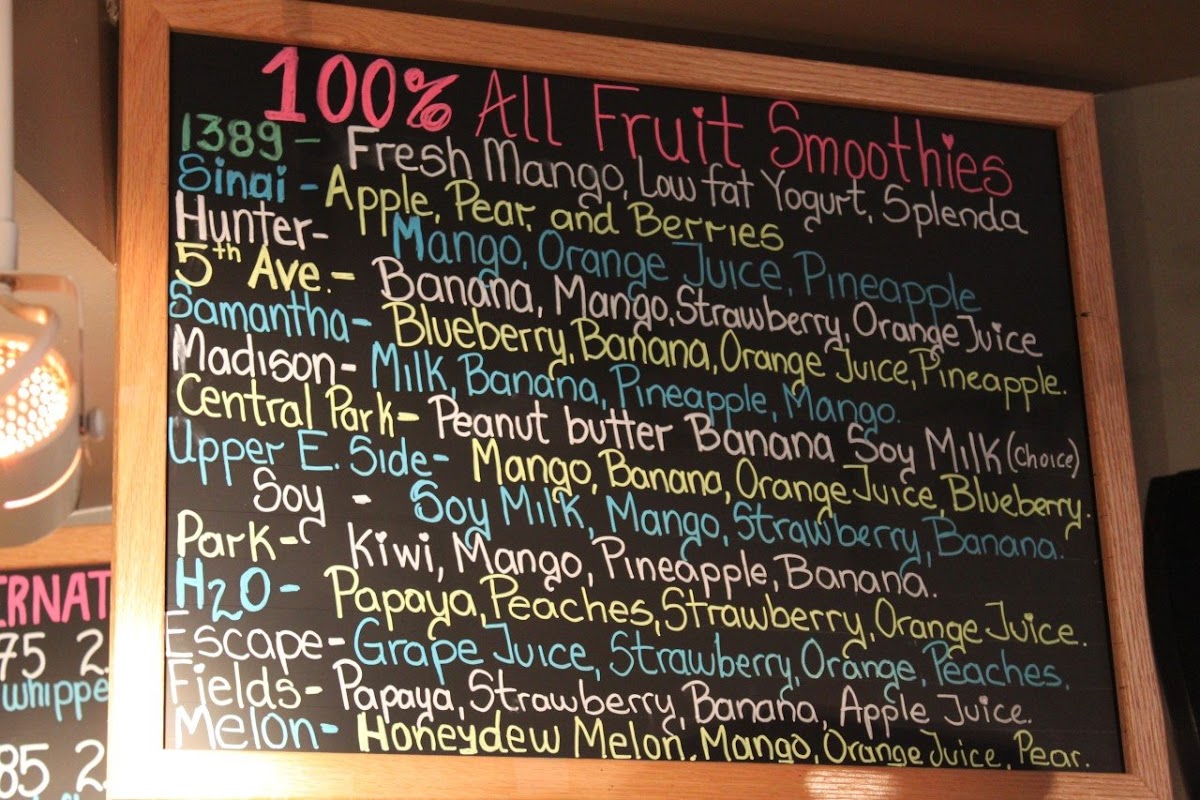 100% All Fruit Smoothies
1389 - Fresh Mango, Low fat Yogurt, Splenda
Sinai - Apple, Pear, and Berries
Hunter- Mango, Orange Juice, Pineapple
5th Ave. - Banana, Mango, Strawberry, Orange Juice
Samantha- Blueberry, Banana, Orange Juice, Pineapple.
Madison- Milk, Banana, Pineapple, Mango.
Central Park- Peanut butter Banana Soy Milk (choice)
Upper E. Side- Mango, Banana, Orange Juice, Blueberry.
Soy - Soy Milk, Mango, Strawberry, Banana.
Park- Kiwi, Mango, Pineapple, Banana.
H2O- Papaya, Peaches, Strawberry, Orange Juice.
Escape- Grape Juice, Strawberry, Orange, Peaches.
Fields- Papaya, Strawberry, Banana, Apple Juice.
Melon- Honeydew Melon, Mango, Orange Juice, Pear.
ERNAT
75 2.
whippe
85 2.